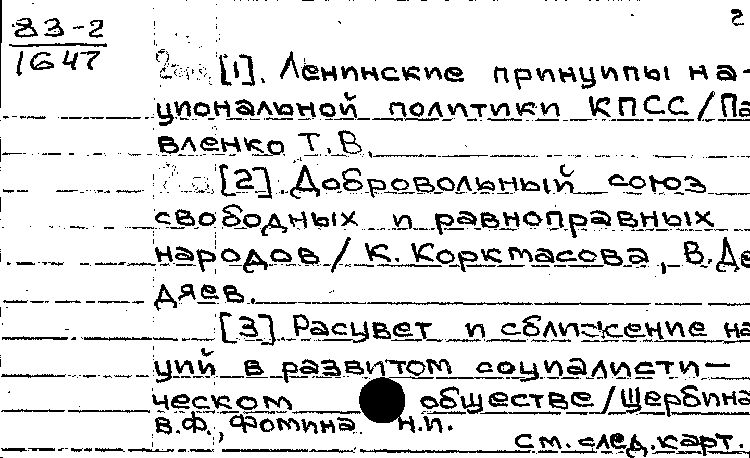 83-2
1647
2
[1]. Ленинские принципы на-
циональной политики КПСС/Па
вленко Т.В.
[2]. Добровольный союз
свободных и равноправных
народов/К. Коркмасова, В.Де
дяев.
[3] Расцвет и сближение на
ций в развитом социалисти-
ческом обществе/Щербина
В.Ф., Фомина Н.И.
см. след. карт.